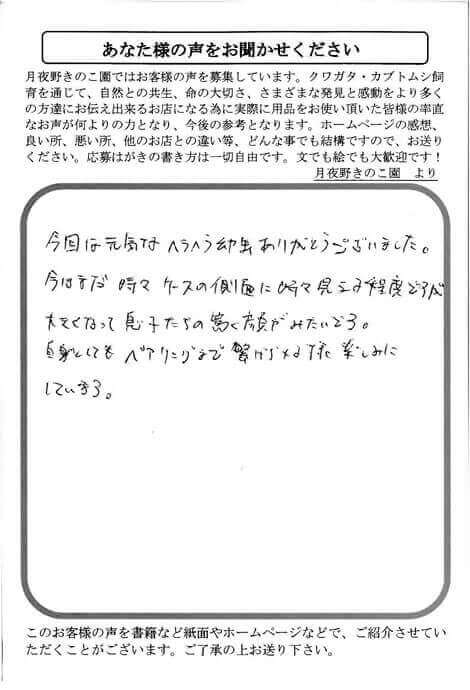 あなた様の声をお聞かせください
月夜野きのこ園ではお客様の声を募集しています。クワガタ・カブトムシ飼
育を通じて、自然との共生、命の大切さ、さまざまな発見と感動をより多く
の方達にお伝え出来るお店になる為に実際に用品をお使い頂いた皆様の率直
なお声が何よりの力となり、今後の参考となります。ホームページの感想、
良い所、悪い所、他のお店との違い等、どんな事でも結構ですので、お送り
ください。応募はがきの書き方は一切自由です。文でも絵でも大歓迎です！
月夜野きのこ園　より
今回は元気なヘラヘラ幼虫ありがとうございました。
今はまだ 時々 ケースの側面に 時々見える程度ですが
大きくなって息子たちの驚く顔がみたいです。
自身としても ペアリングまで 繋げられる様 楽しみに
しています。
このお客様の声を書籍など紙面やホームページなどで、ご紹介させてい
ただくことがございます。ご了承の上お送り下さい。